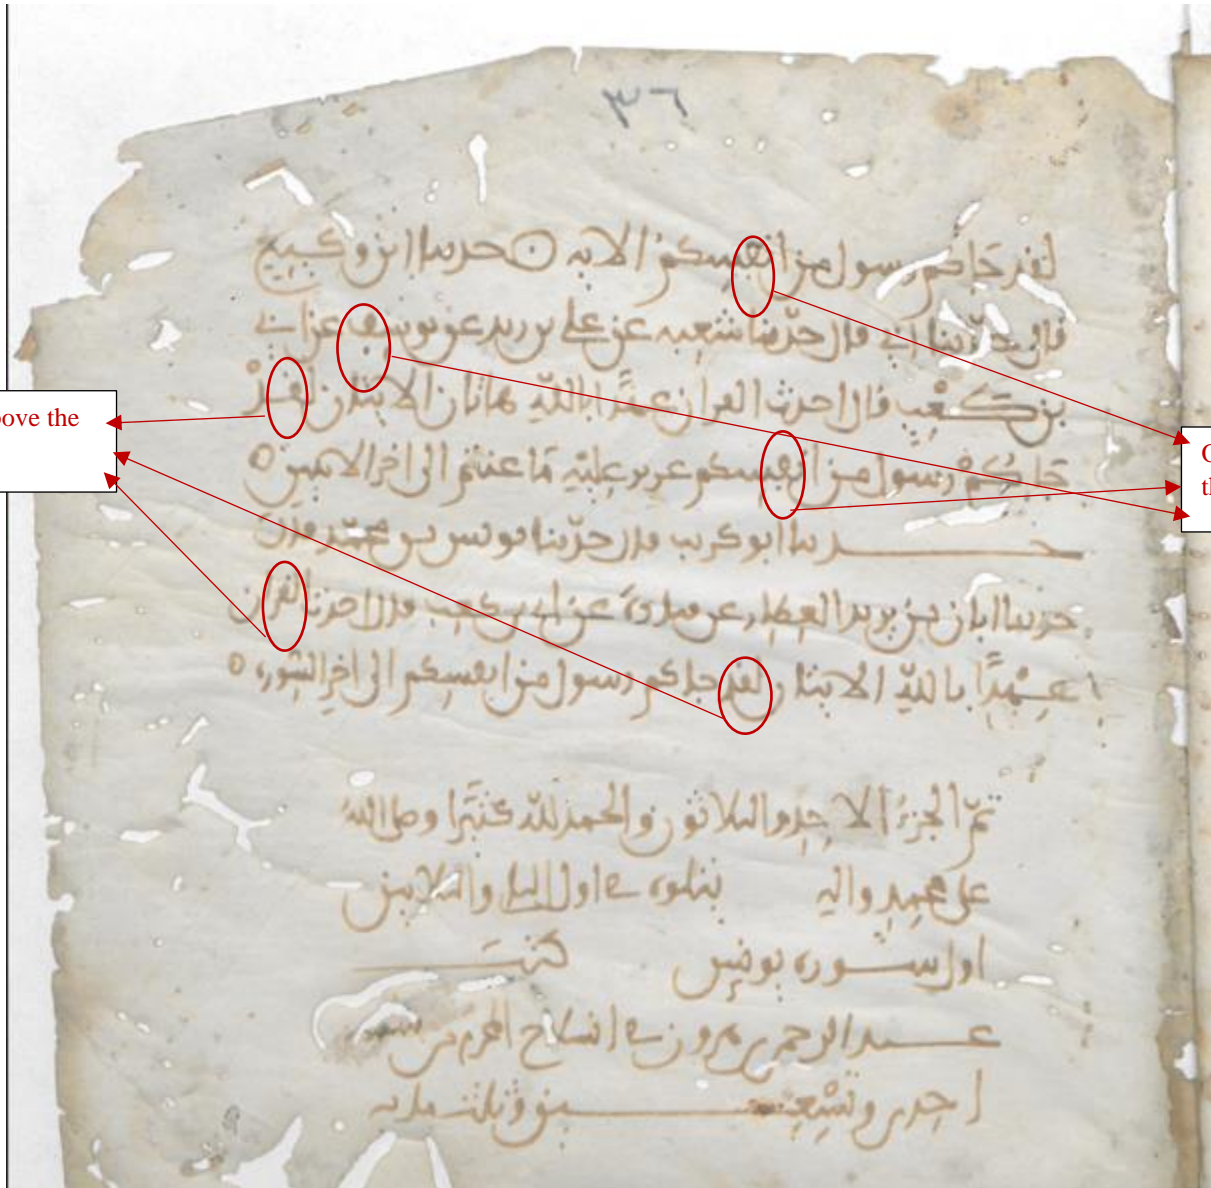 ٣٦
لقد جاكم رسول من انفسكم الايه ن حدثنا ابن وكيع
قال حدّثنا ابي قال حدّثنا شعبه عن علي بن زيد عن يوسف عن ابي
بن كعب قال احدث القران عهدًا بالله هاتان الايتان لقد
جاكم رسول من انفسكم عزيز عليه ما عنتم الى اخر الايتين ه
حدثنا ابو كريب قال حدّثنا يونس بن محمد قال
حدثنا ابان بن يزيد العطار عن قتادة عن ابي بن كعب قال احدث القران
عهدًا بالله الايتان لقد جاكم رسول من انفسكم الى اخر السّوره ه
تمّ الجزء الاحد والثلاثون والحمد لله كثيرًا وصلى الله
على محمد واله يتلوه في اول الثاني والثلاثين
اول سوره يونس كتب
عبد الرحمن في انسلاخ المحرم من سنه
احدى وتسعين وثلث مايه
ove the